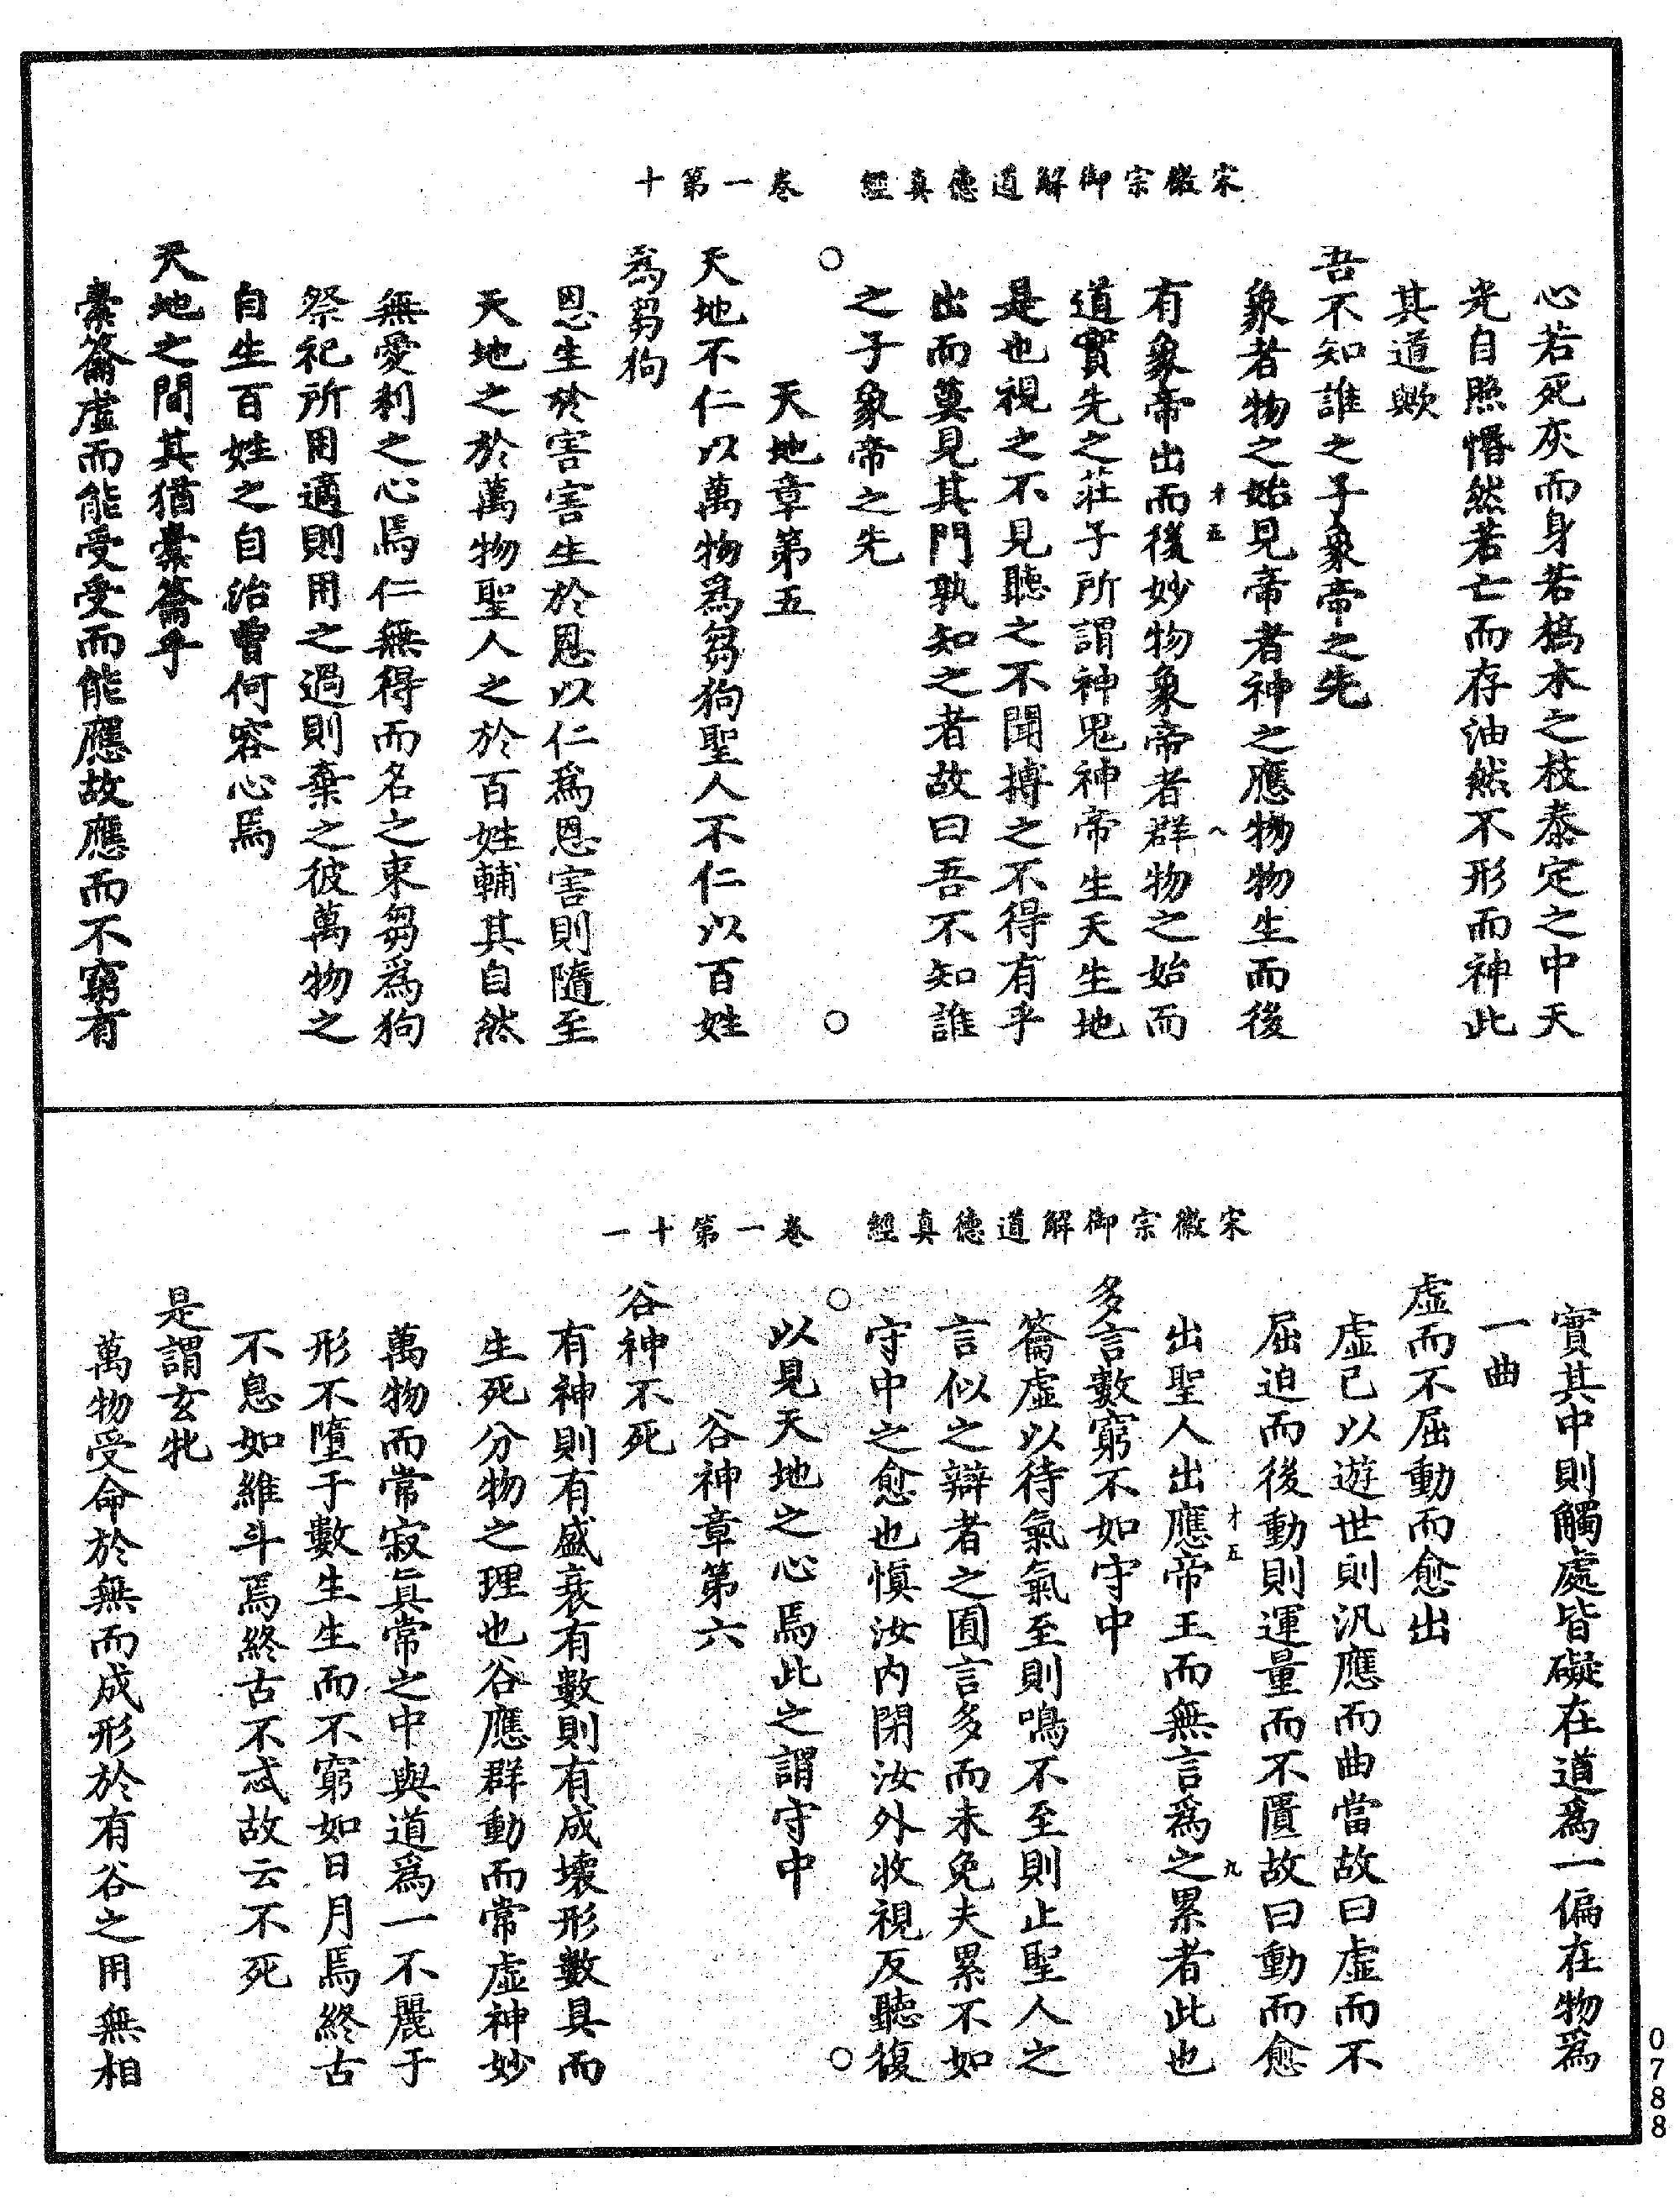 宋徽宗御解道德真經　卷一第十
心若死灰而身若槁木之枝泰定之中天
光自照惛然若亡而存油然不形而神此
其道歟
吾不知誰之子象帝之先
象者物之始見帝者神之應物物生而後
才五　八
有象帝出而後妙物象帝者群物之始而
道實先之莊子所謂神鬼神帝生天生地
是也視之不見聽之不聞搏之不得有乎
出而莫見其門孰知之者故曰吾不知誰
之子象帝之先
○　○
天地章第五
天地不仁以萬物爲芻狗聖人不仁以百姓
爲芻狗
恩生於害害生於恩以仁爲恩害則隨至
天地之於萬物聖人之於百姓輔其自然
無愛利之心焉仁無得而名之束芻爲狗
祭祀所用適則用之過則棄之彼萬物之
自生百姓之自治曾何容心焉
天地之間其猶橐籥乎
橐籥虛而能受受而能應故應而不窮有
宋徽宗御解道德真經　卷一第十一
實其中則觸處皆礙在道爲一偏在物爲
一曲
虛而不屈動而愈出
虛己以遊世則汎應而曲當故曰虛而不
屈迫而後動則運量而不匱故曰動而愈
才五　九
出聖人出應帝王而無言爲之累者此也
多言數窮不如守中
籥虛以待氣氣至則鳴不至則止聖人之
言似之辯者之囿言多而未免夫累不如
守中之愈也慎汝内閉汝外收視反聽復
○　○
以見天地之心焉此之謂守中
谷神章第六
谷神不死
有神則有盛衰有數則有成壞形數具而
生死分物之理也谷應群動而常虛神妙
萬物而常寂真常之中與道爲一不麗于
形不墮于數生生而不窮如日月焉終古
不息如維斗焉終古不忒故云不死
是謂玄牝
萬物受命於無而成形於有谷之用無相
0788